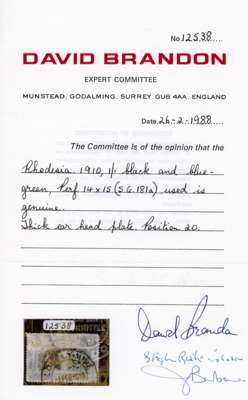 No. 12538
DAVID BRANDON
EXPERT COMMITTEE
MUNSTEAD, GODALMING, SURREY GU8 4AA, ENGLAND
Date. 26-2-1988
The Committee is of the opinion that the
Rhodesia 1910, 1/- black and blue-
green, Perf 14 x 15 (S.G. 181a) used is
genuine.
Thick ear head plate. Position 20.
12538
David Brandon